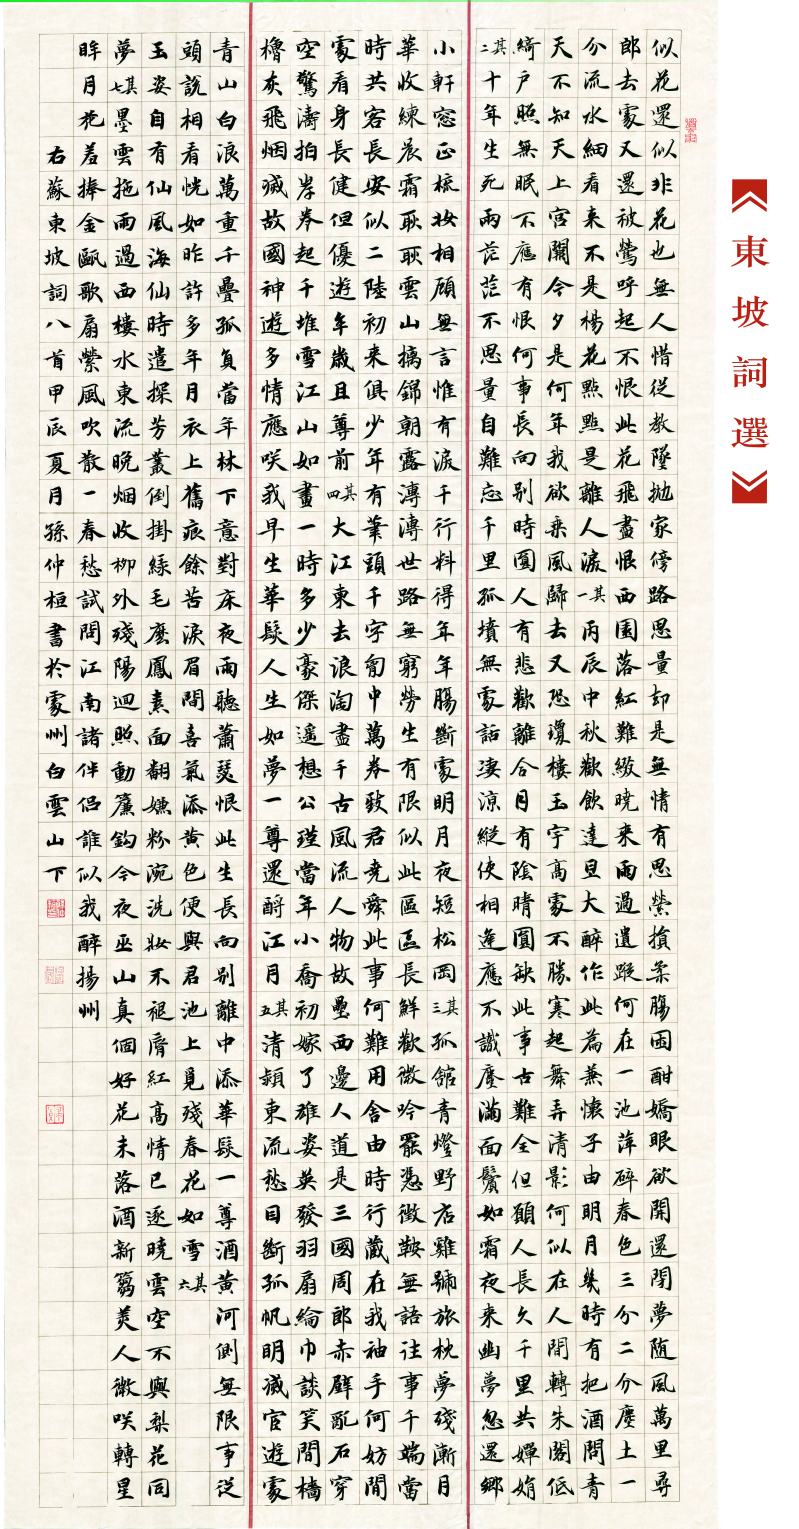 東坡詞選
似花還似非花也無人惜從教墜拋家傍路思量却是無情有思縈損柔腸困酣嬌眼欲開還閉夢隨風萬里尋
郎去處又還被鶯呼起不恨此花飛盡恨西園落紅難綴曉來雨過遺蹤何在一池萍碎春色三分二分塵土一
分流水細看來不是楊花點點是離人淚其一丙辰中秋歡飲達旦大醉作此為兼懷子由明月幾時有把酒問青
天不知天上宮闕今夕是何年我欲乘風歸去又恐瓊樓玉宇高處不勝寒起舞弄清影何似在人間轉朱閣低
綺戶照無眠不應有恨何事長向別時圓人有悲歡離合月有陰晴圓缺此事古難全但願人長久千里共嬋娟
其二十年生死兩茫茫不思量自難忘千里孤墳無處話淒涼縱使相逢應不識塵滿面鬢如霜夜來幽夢忽還鄉
小軒窗正梳妝相顧無言惟有淚千行料得年年腸斷處明月夜短松岡其三孤館青燈野店雞號旅枕夢殘漸月
華收練晨霜耿耿雲山摛錦朝露漙漙世路無窮勞生有限似此區區長鮮歡微吟罷憑征鞍無語往事千端當
時共客長安似二陸初來俱少年有筆頭千字胸中萬卷致君堯舜此事何難用舍由時行藏在我袖手何妨閒
處看身長健但優遊卒歲且尊前其四大江東去浪淘盡千古風流人物故壘西邊人道是三國周郎赤壁亂石穿
空驚濤拍岸卷起千堆雪江山如畫一時多少豪傑遙想公瑾當年小喬初嫁了雄姿英發羽扇綸巾談笑間檣
櫓灰飛烟滅故國神遊多情應笑我早生華髮人生如夢一尊還酹江月其五清潁東流愁目斷孤帆明滅宦遊處
青山白浪萬重千疊孤負當年林下意對床夜雨聽蕭瑟恨此生長向別離中添華髮一尊酒黃河側無限事從
頭說相看恍如昨許多年月衣上舊痕餘苦淚眉間喜氣添黃色便與君池上覓殘春花如雪其六
玉姿自有仙風海仙時遣探芳叢倒掛綠毛麼鳳素面翻嫌粉涴洗妝不褪脣紅高情已逐曉雲空不與梨花同
夢其七墨雲拖雨過西樓水東流晚烟收柳外殘陽迴照動簾鈎今夜巫山真個好花未落酒新篘美人微笑轉星
眸月花羞捧金甌歌扇縈風吹散一春愁試問江南諸伴侶誰似我醉揚州
右蘇東坡詞八首甲辰夏月孫仲桓書於處州白雲山下